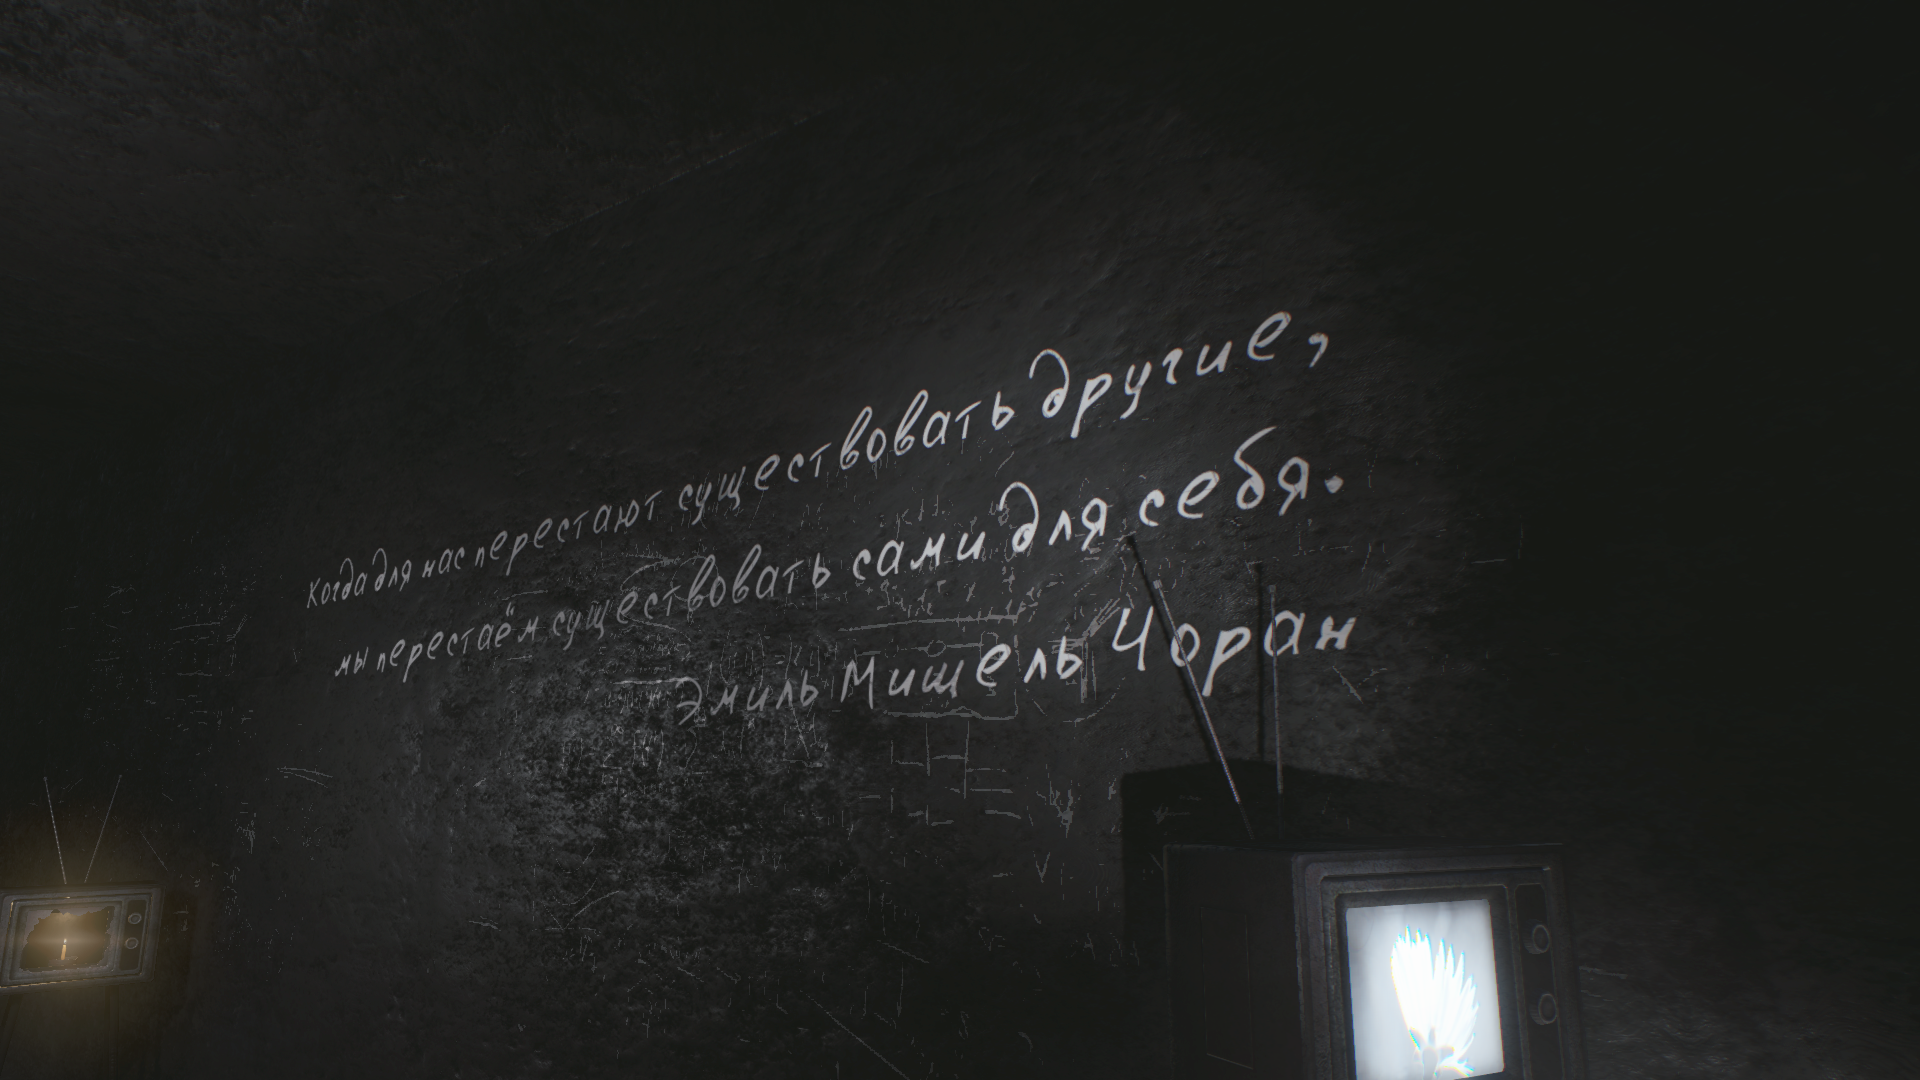 Когда для нас перестают существовать другие,
мы перестаём существовать сами для себя.
Эмиль Мишель Чоран